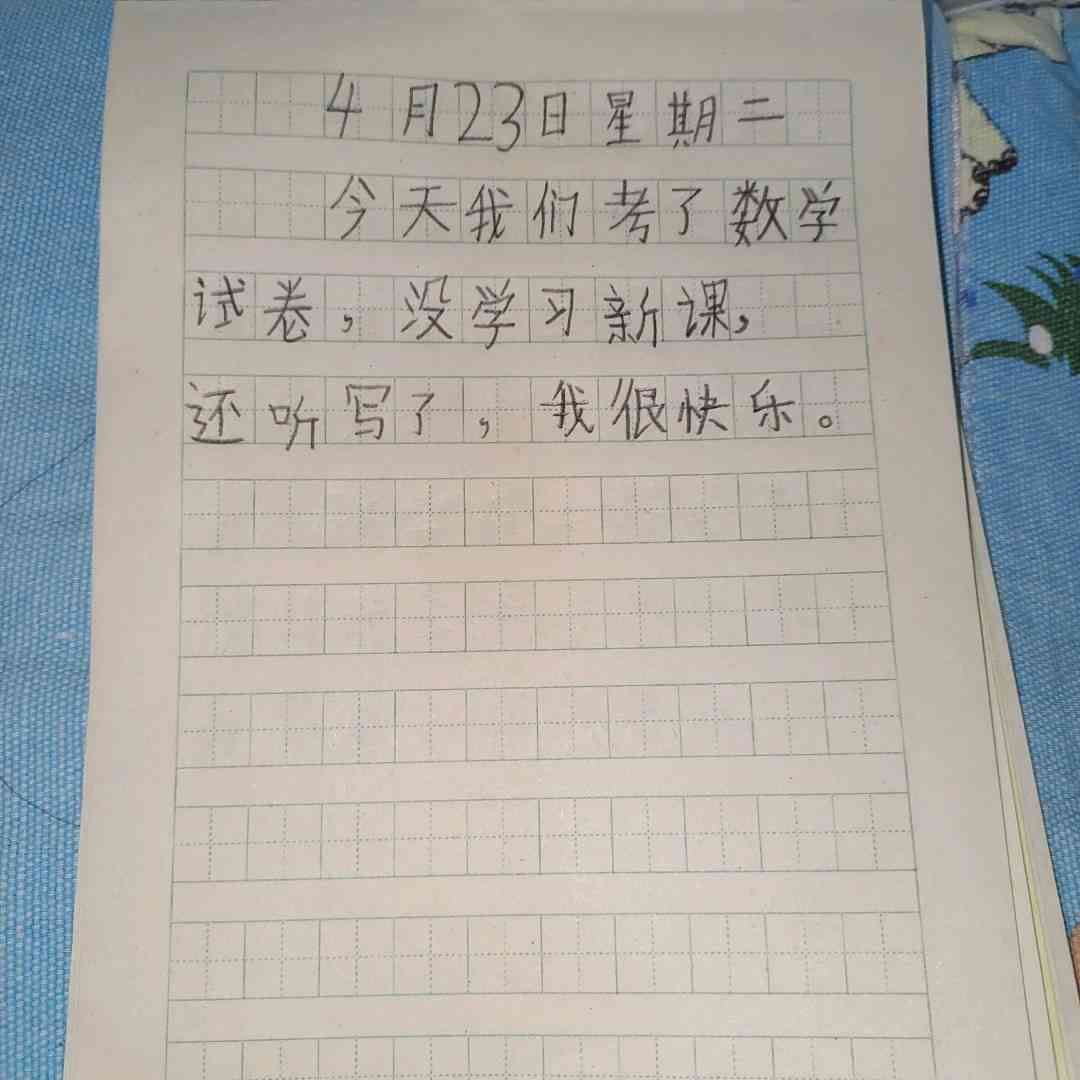 4月23日星期二
今天我们考了数学
试卷，没学习新课，
还听写了，我很快乐。